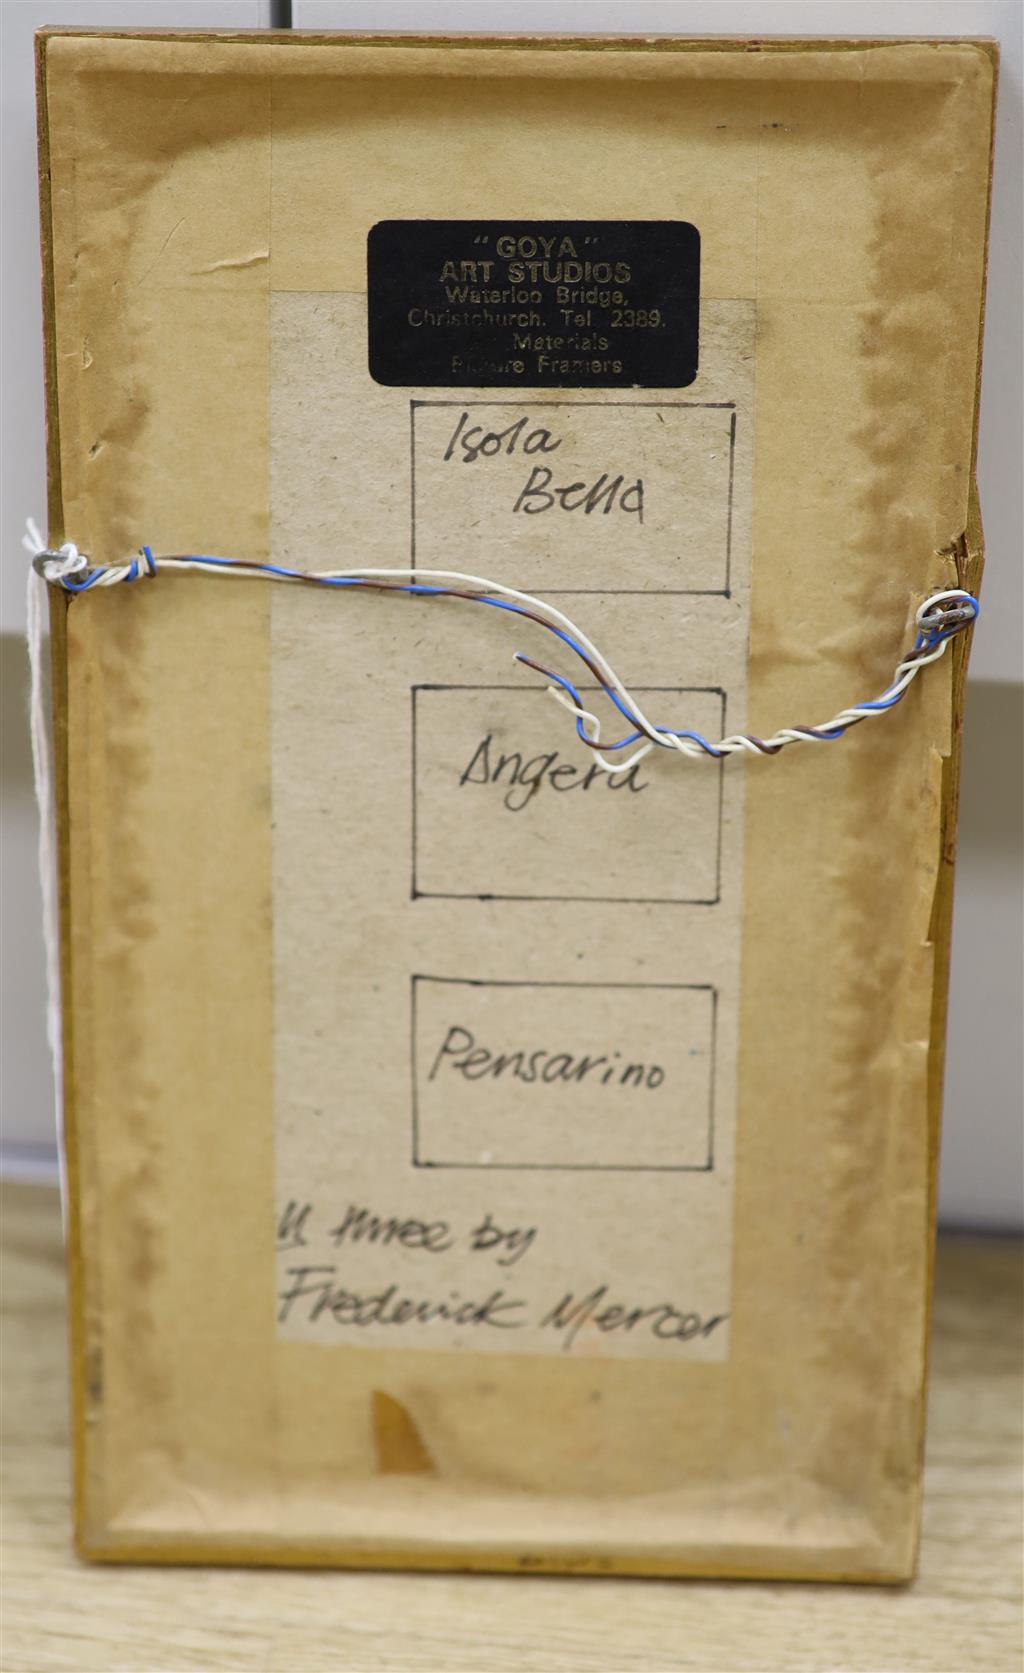 "GOYA"
ART STUDIOS
Waterloo Bridge,
Christchurch. Tel 2389.
Materials
Picture Framers
Isola
Bella
Angera
Pensarino
three by
Frederick Mercer